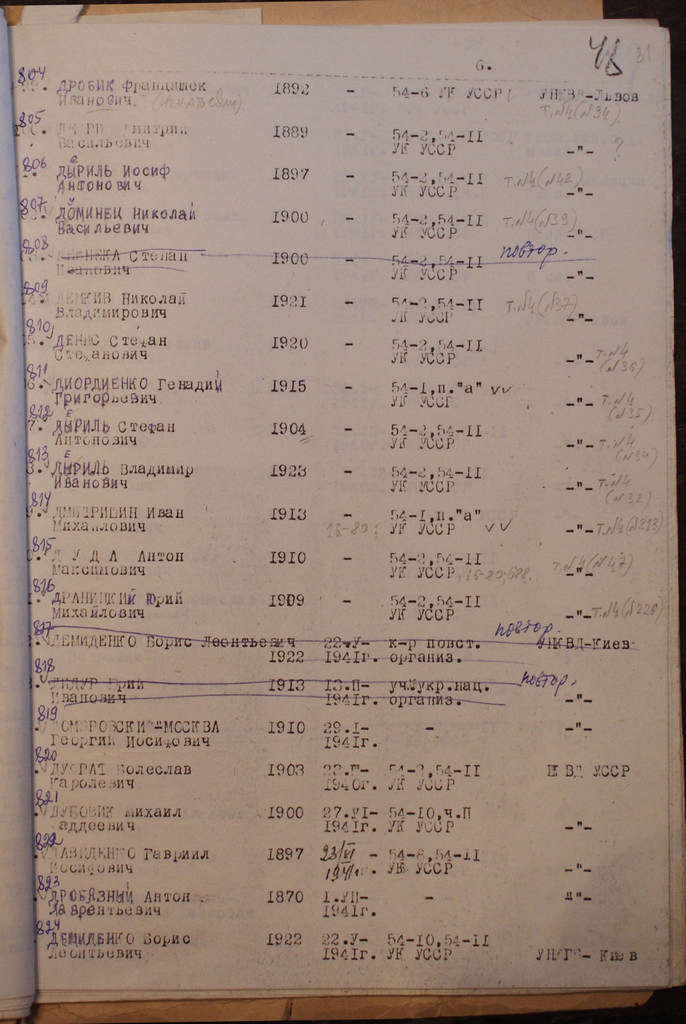 6. 48 31
804 ДРОБИК Францишек 1892 - 54-6 УК УССР УНКВД-Львов
Иванович. т.№4(№34)
805 Дмитрий 1889 - 54-2,54-II ?
Васильевич УК УССР -"-
806 ДЫРИЛЬ Иосиф 1897 - 54-2,54-II т.№4(№42)
Антонович УК УССР -"-
807 ДОМИНЕЦ Николай 1900 - 54-2,54-II т.№4(№39)
Васильевич УК УССР -"-
808 Степан 1900 - 54-2,54-II повтор.
Иванович УК УССР -"-
809 ДЕМКИВ Николай 1921 - 54-2,54-II т.№4(№37)
Владимирович УК УССР -"-
810 5. ДЕНИС Стефан 1920 - 54-2,54-II
Стефанович УК УССР -"- т.№4 (№36)
811 6. ДИОРДИЕНКО Генадий 1915 - 54-I,п."а" vv
Григорьевич УК УССР -"- т.№4 (№35)
812 7. ДЫРИЛЬ Стефан 1904 - 54-2,54-II
Антонович УК УССР -"- т.№4 (№34)
813 ДЫРИЛЬ Владимир 1923 - 54-2,54-II
Иванович УК УССР -"- т.№4 (№32)
814 ДМИТРИШИН Иван 1913 - 54-I,п."а"
Михайлович УК УССР vv -"- т.№4(№213)
815 Д У Д А Антон 1910 - 54-2,54-II т.№4(№47)
Максимович УК УССР -"-
816 ДРАНИЦКИЙ Юрий 1909 - 54-2,54-II
Михайлович УК УССР -"- т.№4(№226)
817 ДЕМИДЕНКО Борис Леонтьевич 22.У- к-р повст. повтор. УНКВД-Киев
1922 1941г. организ.
818 1913 13.П- уч.укр.нац. повтор.
Иванович 1941г. организ. -"-
819 ДОМБРОВСКИЙ-МОСКВА 1910 29.I- -
Георгий Иосифович 1941г.
820 ДУБРАТ Болеслав 1903 54-2,54-II НКВД УССР
Каролевич 1940г. УК УССР
821 ДУБОВИК Михаил 1900 27.УI- 54-10,ч.П
Фаддеевич 1941г. УК УССР -"-
822 ДАВИДЕНКО Гавриил 1897 23/VI - 54-8,54-II
Иосифович 1941г. УК УССР -"-
823 ДРОБЯЗНЫЙ Антон 1870 1.УП- - -"-
Лаврентьевич 1941г.
824 ДЕМИДЕНКО Борис 1922 22.У- 54-10,54-II
Леонтьевич 1941г. УК УССР УНКГБ- Киев